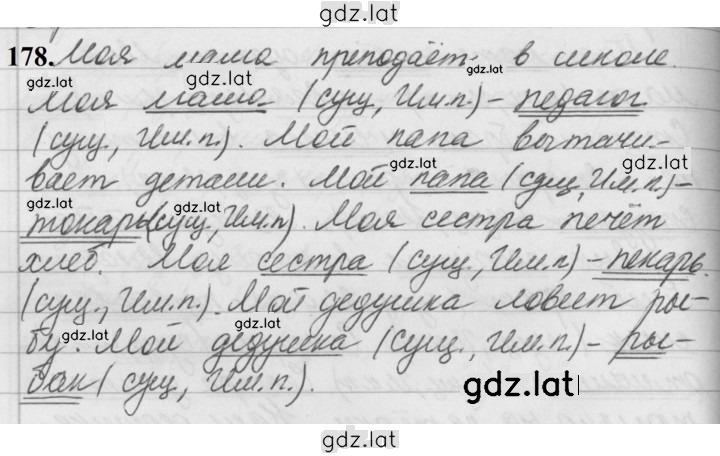 gdz.lat
178. Моя мама преподаёт в школе.
gdz.lat gdz.lat gdz.lat
Моя мама (сущ., Им.п.) – педагог
(сущ., Им.п.). Мой папа вытачи-
gdz.lat gdz.lat
вает детали. Мой папа (сущ., Им.п.) –
gdz.lat gdz.lat
токарь (сущ., Им.п.). Моя сестра печёт
хлеб. Моя сестра (сущ., Им.п.) – пекарь
(сущ., Им.п.). Мой дедушка ловит ры-
gdz.lat gdz.lat
бу. Мой дедушка (сущ., Им.п.) – ры-
бак (сущ., Им.п.).
gdz.lat
gdz.lat